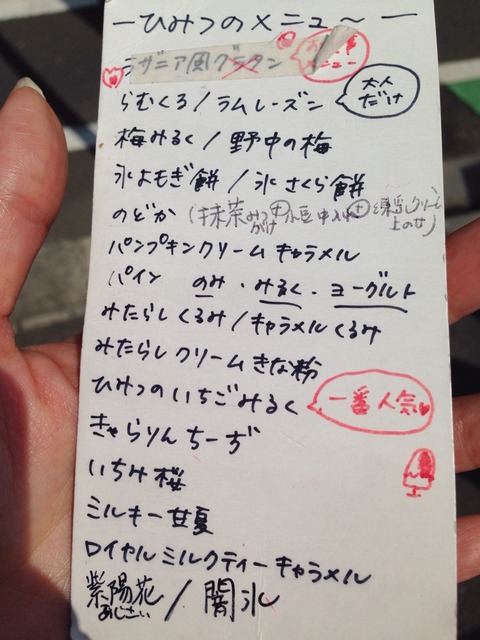 ーひみつのメニュ～ー
ラザニア風グラタン
お食事
メニュー
らむくろ/ラムレーズン
大人
だけ
梅みるく/野中の梅
氷よもぎ餅/氷さくら餅
のどか(抹茶みつがけ⊕小豆中入れ⊕練乳クリーム上のせ)
パンプキンクリームキャラメル
パイン のみ・みるく・ヨーグルト
みたらしくるみ/キャラメルくるみ
みたらしクリームきな粉
ひみつのいちごみるく
一番人気
きゃらりんちーぢ
いちみ桜
ミルキー甘夏
ロイヤルミルクティーキャラメル
紫陽花/闇氷
あじさい